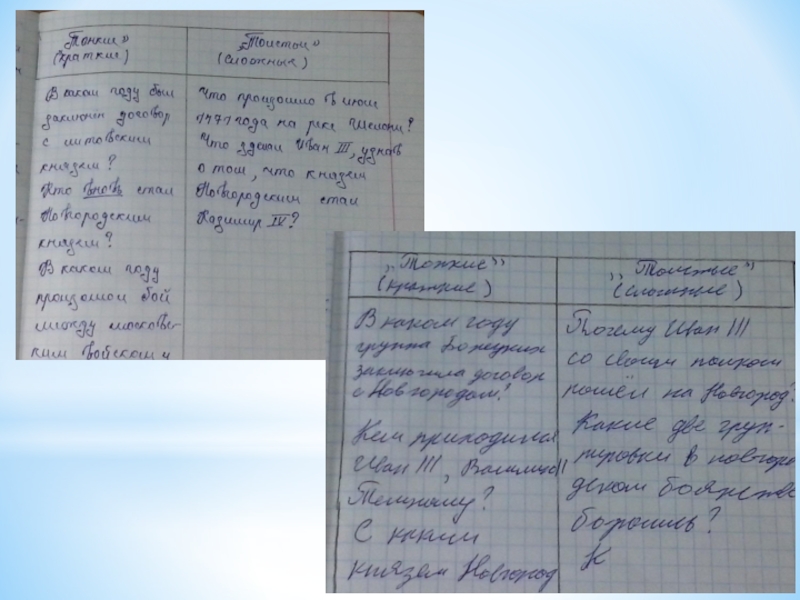 „Тонкие”
(краткие)
„Толстые”
(сложные)
В каком году был
заключён договор
с литовским
князем?
Кто вновь стал
Новгородским
князем?
В каком году
произошол бой
между москов-
ким войском и
Что произошло в июле
1471 года на реке Шелони?
Что здали Иван III, узнав
о том, что князем
Новгородским стал
Казимир IV?
„Тонкие”
(краткие)
„Толстые”
(сложные)
В каком году
группа Борецких
заключила договор
с Новгородом?
Кем приходился
Иван III, Василию II
Темному?
С каким
князем Новгород
Почему Иван III
со своим полком
пошёл на Новгород?
Какие две груп-
пировки в новгоро
дском боярстве
боролись?
К